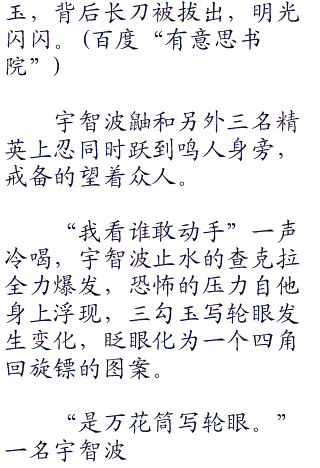 玉，背后长刀被拔出，明光
闪闪。(百度“有意思书
院”)
宇智波鼬和另外三名精
英上忍同时跃到鸣人身旁，
戒备的望着众人。
“我看谁敢动手”一声
冷喝，宇智波止水的查克拉
全力爆发，恐怖的压力自他
身上浮现，三勾玉写轮眼发
生变化，眨眼化为一个四角
回旋镖的图案。
“是万花筒写轮眼。”
一名宇智波